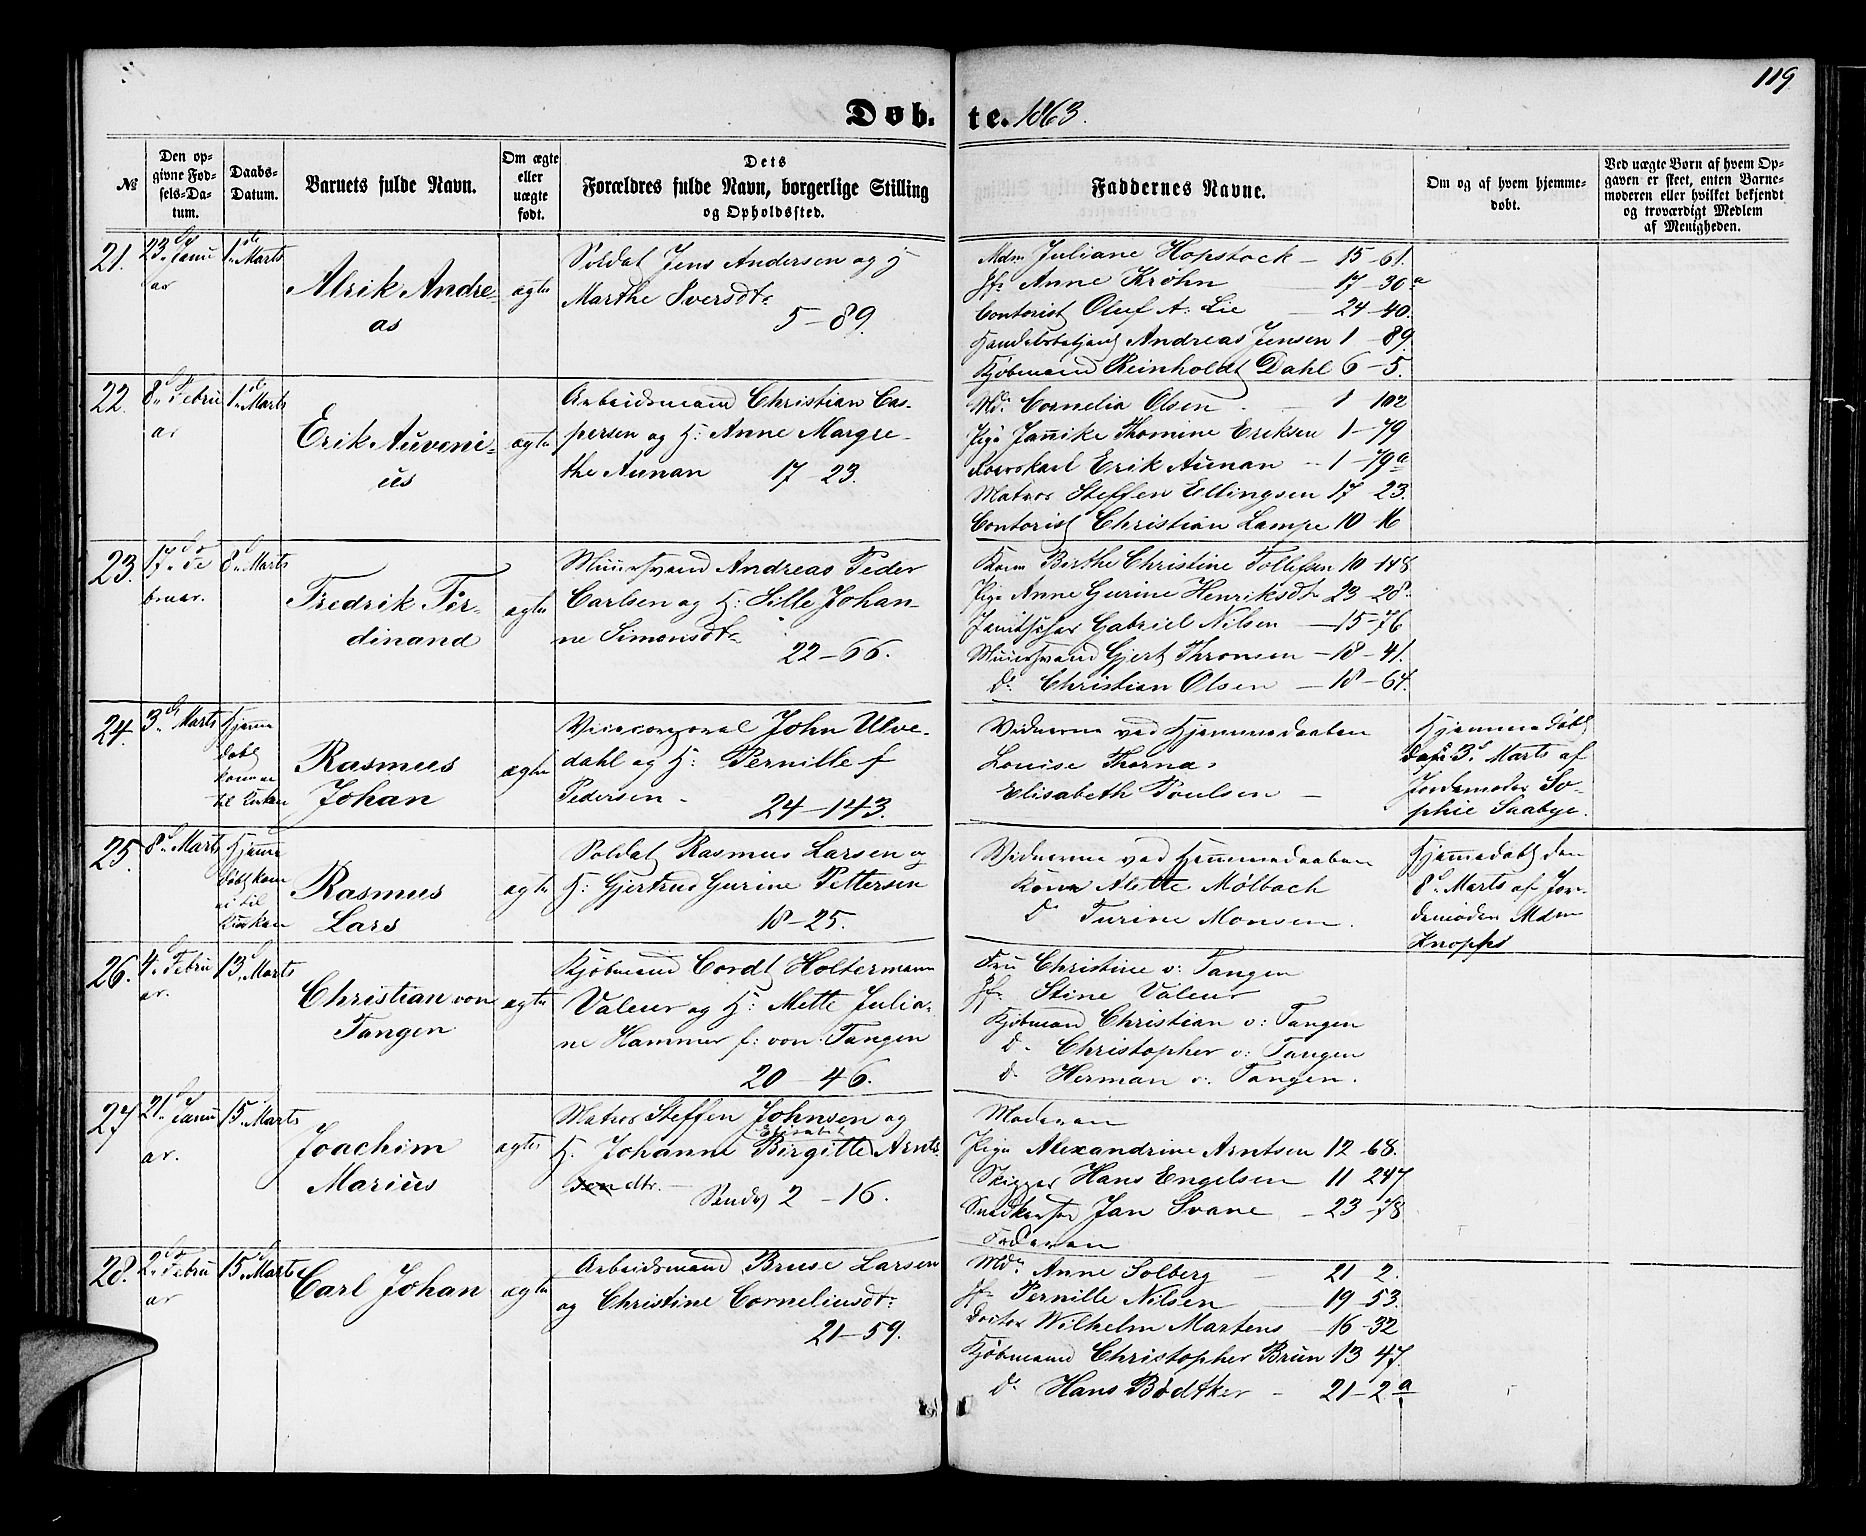 119
Døb- te. 1863.
№
Den op-
givne Fød-
sels-Da-
tum.
Daabs-
Datum.
Barnets fulde Navn.
Om ægte
eller
uægte
født.
Dets
Forældres fulde Navn, borgerlige Stilling
og Opholdssted.
Faddernes Navne.
Om og af hvem hjemme-
døbt.
Ved uægte Børn af hvem Op-
gaven er skeet, enten Barne-
moderen eller hvilket bekjendt
og troværdigt Medlem
af Menigheden.
21.
23de Janu
ar
1ste Marts
Alrik Andre-
as
ægte
Soldat Jens Andersen og H
Marthe Iversdtr
5-89.
Mdm Juliane Hopstock - 15-61.
Jfr Anne Krøhn 17-30a
Contorist Oluf A. Lie 24-40.
Handelsbetjent Andreas Jensen 1 -89.
Kjøbmand Reinholdt Dahl 6-5.
22.
8d Febru
ar
1st Marts
Erik Auveni-
us
ægte
Arbeidsmand Christian Cas-
persen og H: Anne Margre-
the Aunan 17-23.
Md. Cornelia Olsen 1 102
Pige Jannike Thomine Eriksen 1-79
Roerskarl Erik Aunan 1-79a
Matros Steffen Ellingsen 17 23.
Contorist Christian Lampe 10-16
23.
17de Fe
bruar.
8d Marts
Fredrik Fer-
dinand
ægte
Muursvend Andreas Peder
Carlsen og H: Sille Johan-
ne Simonsdtr
22-66.
Kone Birthe Christine Tollefsen 10-148
Pige Anne Gurine Henriksdtr 23-28
Janitschar Gabriel Nilsen -15-76
Muursvend Gjert Thronsen -18-41.
Do Christian Olsen -18-64.
24.
3d Marts
Hjemme
døbt
kommer
til Kirken
Rasmus
Johan
ægte
Vicecorporal John Ulve-
dahl og H: Pernille f
Pedersen - 24-143.
Vidnerne ved Hjemmedaaben
Louise Thornæs
Elisabeth Poulsen -
Hjemmedøbt
den 3d Marts af
Jordemoder So-
phie Saabye.
25.
8d Marts
Hjemme
døbt kom
ei til
Kirken
Rasmus
Lars
ægte
Soldat Rasmus Larsen og
H: Gjertrud Gurine Pettersen
18-25.
Vidnerne ved Hjemmedaaben
Kone Alette Mølbach
Do Turine Monsen.
Hjemmedøbt den
8d Marts af Jor-
demoder Mdm
Knophs
26.
4d Febru
ar.
13d Marts
Christian von
Tangen
ægte
Kjøbmand Cordt Holtermann
Valeur og H: Mette Julia-
ne Hammer f: von Tangen
20-46.
Fru Christine v: Tangen
Jfr Stine Valeur
Kjøbmand Christian v: Tangen
Do Christopher v: Tangen
Do Herman v. Tangen.
27
21d Janu
ar.
15 Marts
Joachim
Marius
ægte
Matros Steffen Johnsen og
Elisabet
H. Johanne Birgitte Arnts-
sen dtr. - Sandv 2 -16.
Moderen
Pige Alexandrine Arntsen 12-68.
Skipper Hans Engelsen 11 247
Snedkersv Jan Svane - 23-78
Faderen
28.
2de Febru
ar
15d Marts
Carl Johan
ægte
Arbeidsmand Bruse Larsen
og Christine Corneliusdtr:
21-59.
Mdm Anne Solberg 21 2.
Jfr Pernille Nilsen 19-53.
Doctor Wilhelm Martens -16-32
Kjøbmand Christopher Brun 13 47.
Do Hans Bødtker - 21-2a